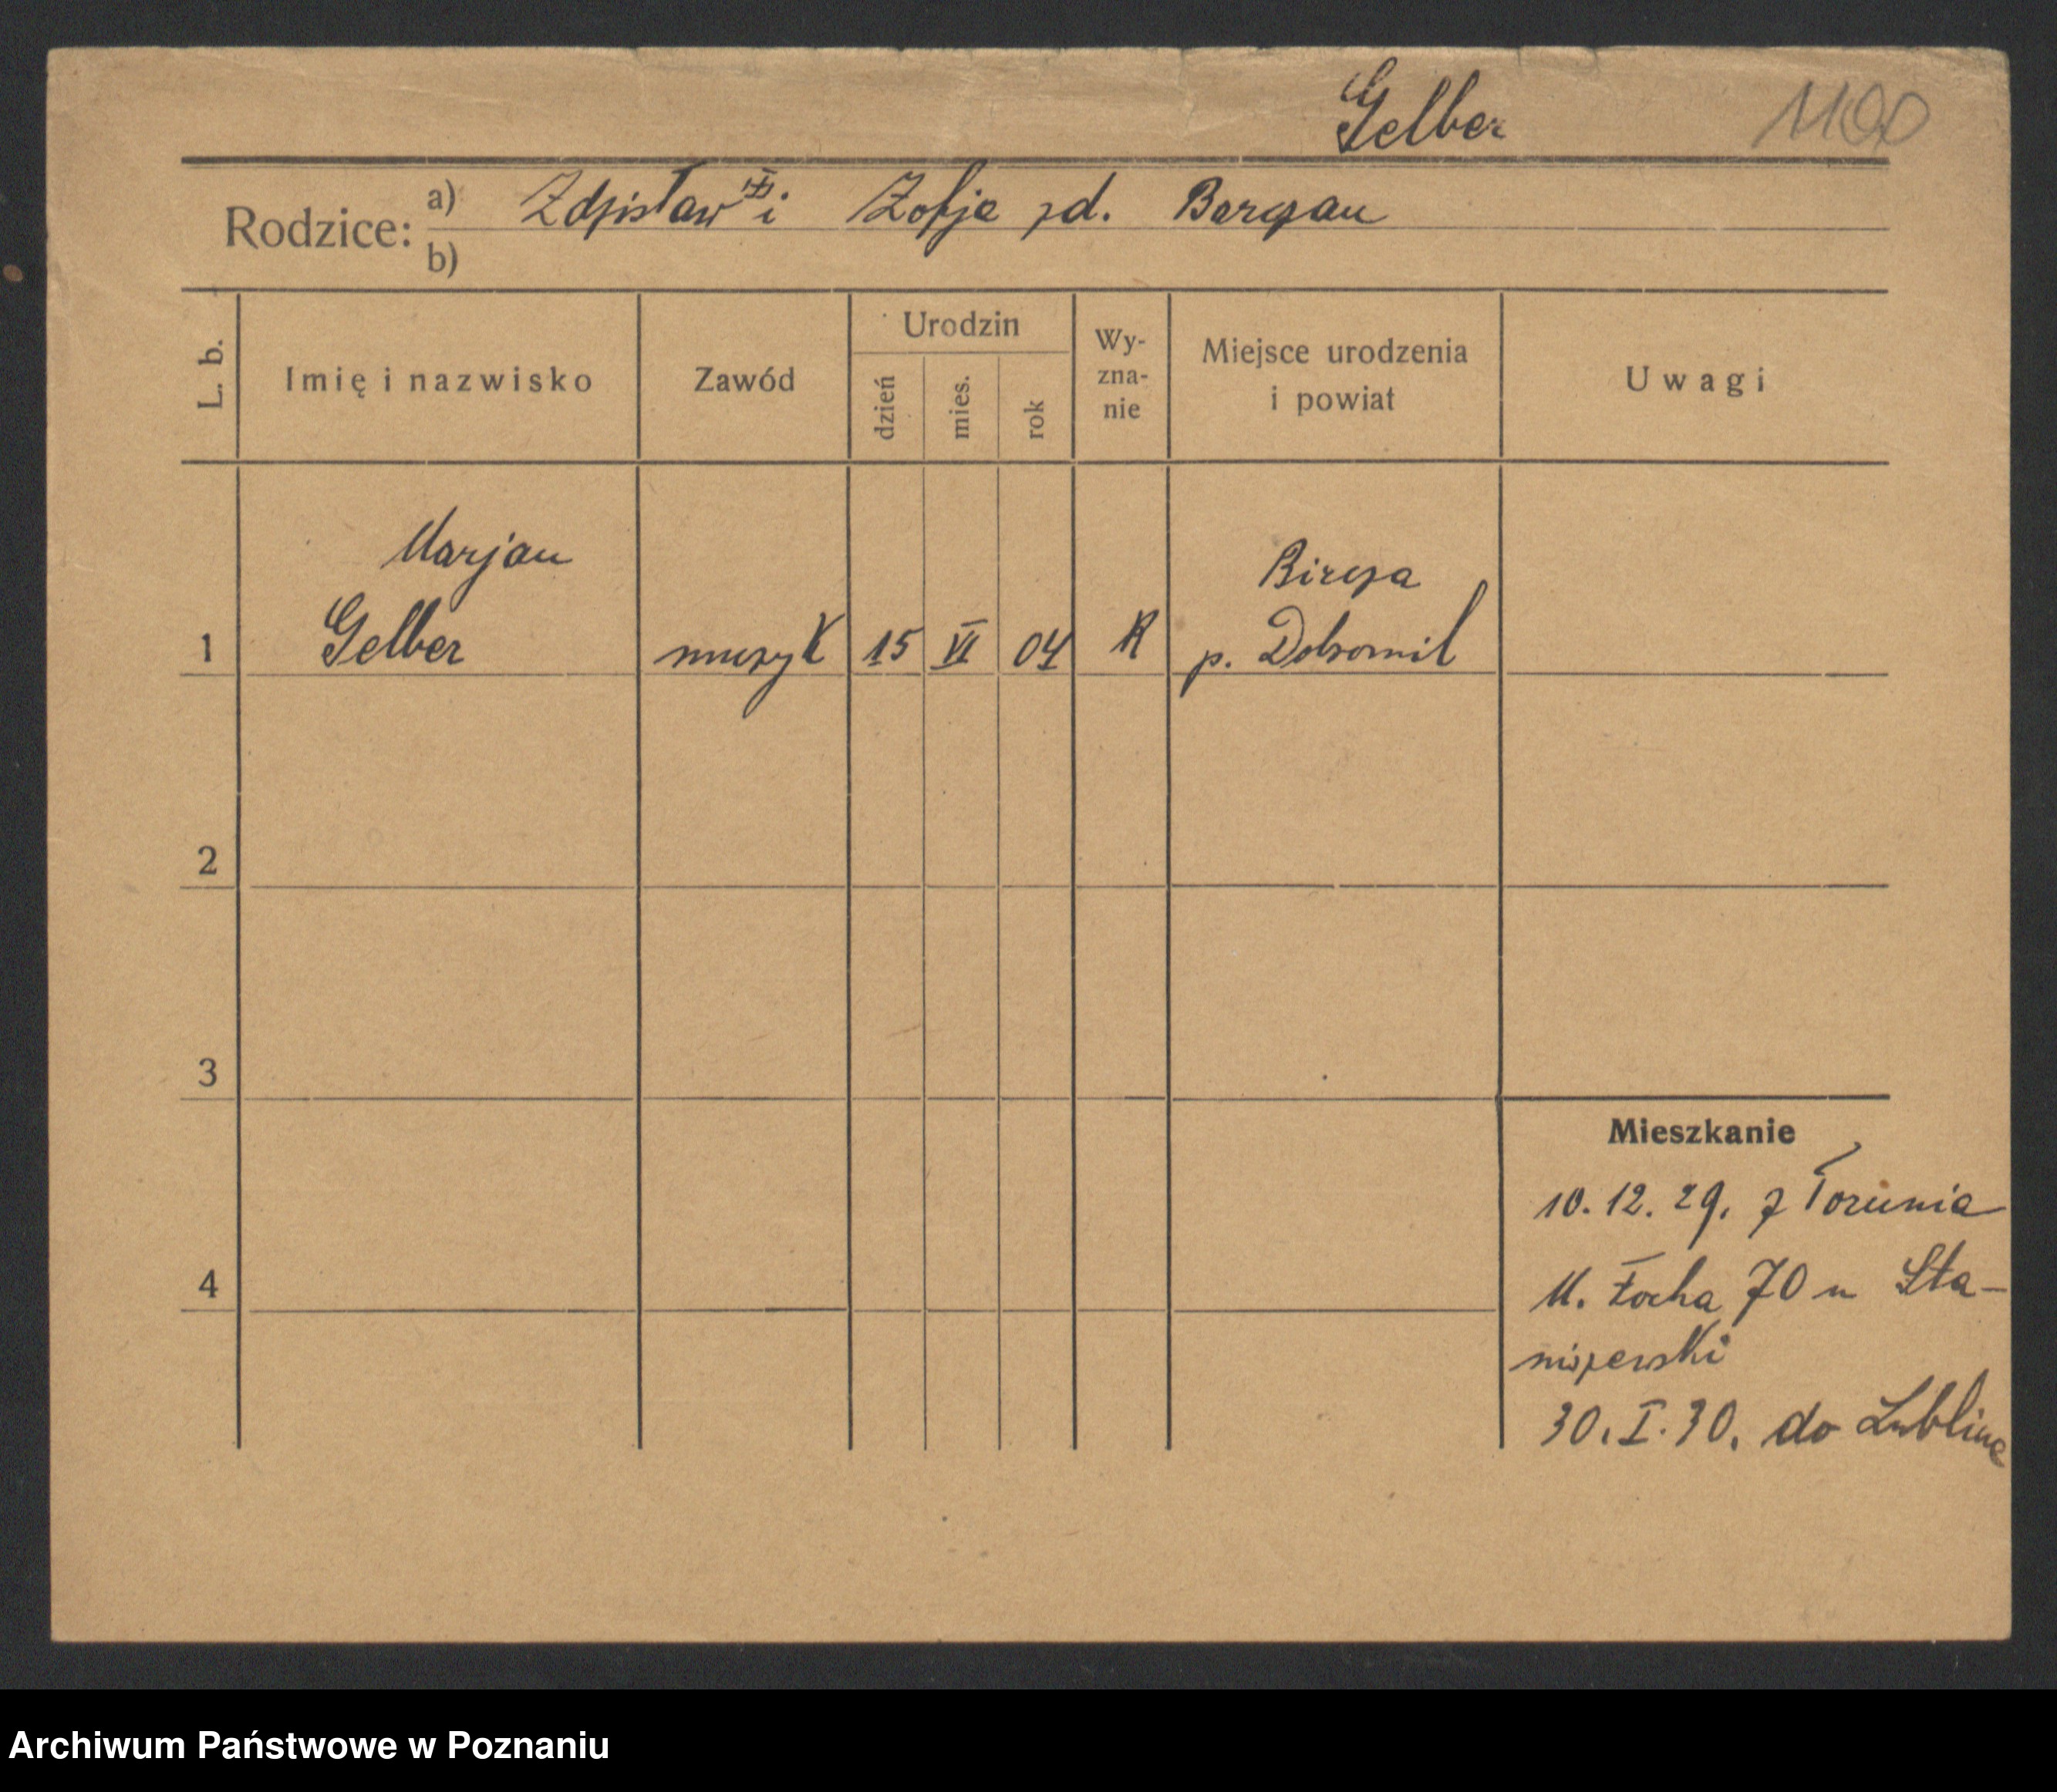 Gelber
1100
Rodzice: a) Zdzisław i Zofja zd. Barczau
b)
L. b. Imię i nazwisko Zawód Urodzin dzień mies. rok Wy-zna-nie Miejsce urodzenia i powiat Uwagi
Marjan Bircza
1 Gelber muzyk 15 VI 04 R p. Dobromil
2
3
Mieszkanie
10.12.29. z Torunia
4
M. Focha 70 u Sta-
niszewski
30.I.30. do Lublina
Archiwum Państwowe w Poznaniu